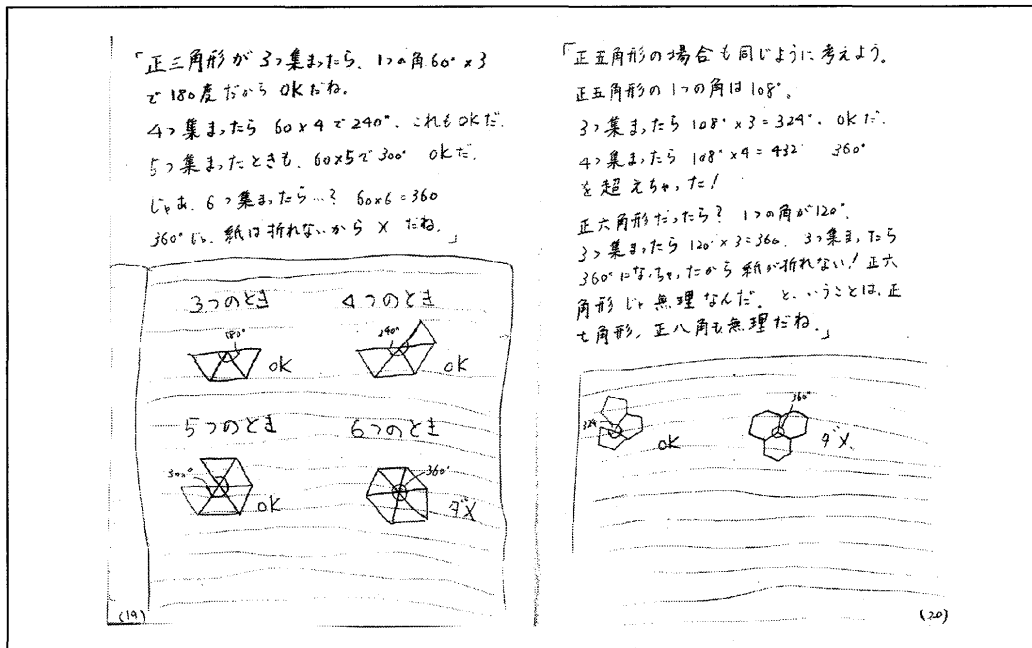 「正三角形が3つ集まったら、1つの角60°×3
で180度だからOKだね。
4つ集まったら60×4で240°、これもOKだ。
5つ集まったときも、60×5で300° OKだ。
じゃあ、6つ集まったら…? 60×6=360
360°じゃ、紙は折れないから×だね。」
3つのとき 4つのとき
180° OK 240° OK
5つのとき 6つのとき
300° OK 360° ダメ
(19)
「正五角形の場合も同じように考えよう。
正五角形の1つの角は108°。
3つ集まったら108°×3=324°、OKだ。
4つ集まったら108°×4=432° 360°
を超えちゃった!
正六角形だったら? 1つの角が120°、
3つ集まったら120°×3=360、3つ集まったら
360°になっちゃったから紙が折れない!正六
角形じゃ無理なんだ。ということは、正
七角形、正八角も無理だね。」
324 OK 360° ダメ
(20)